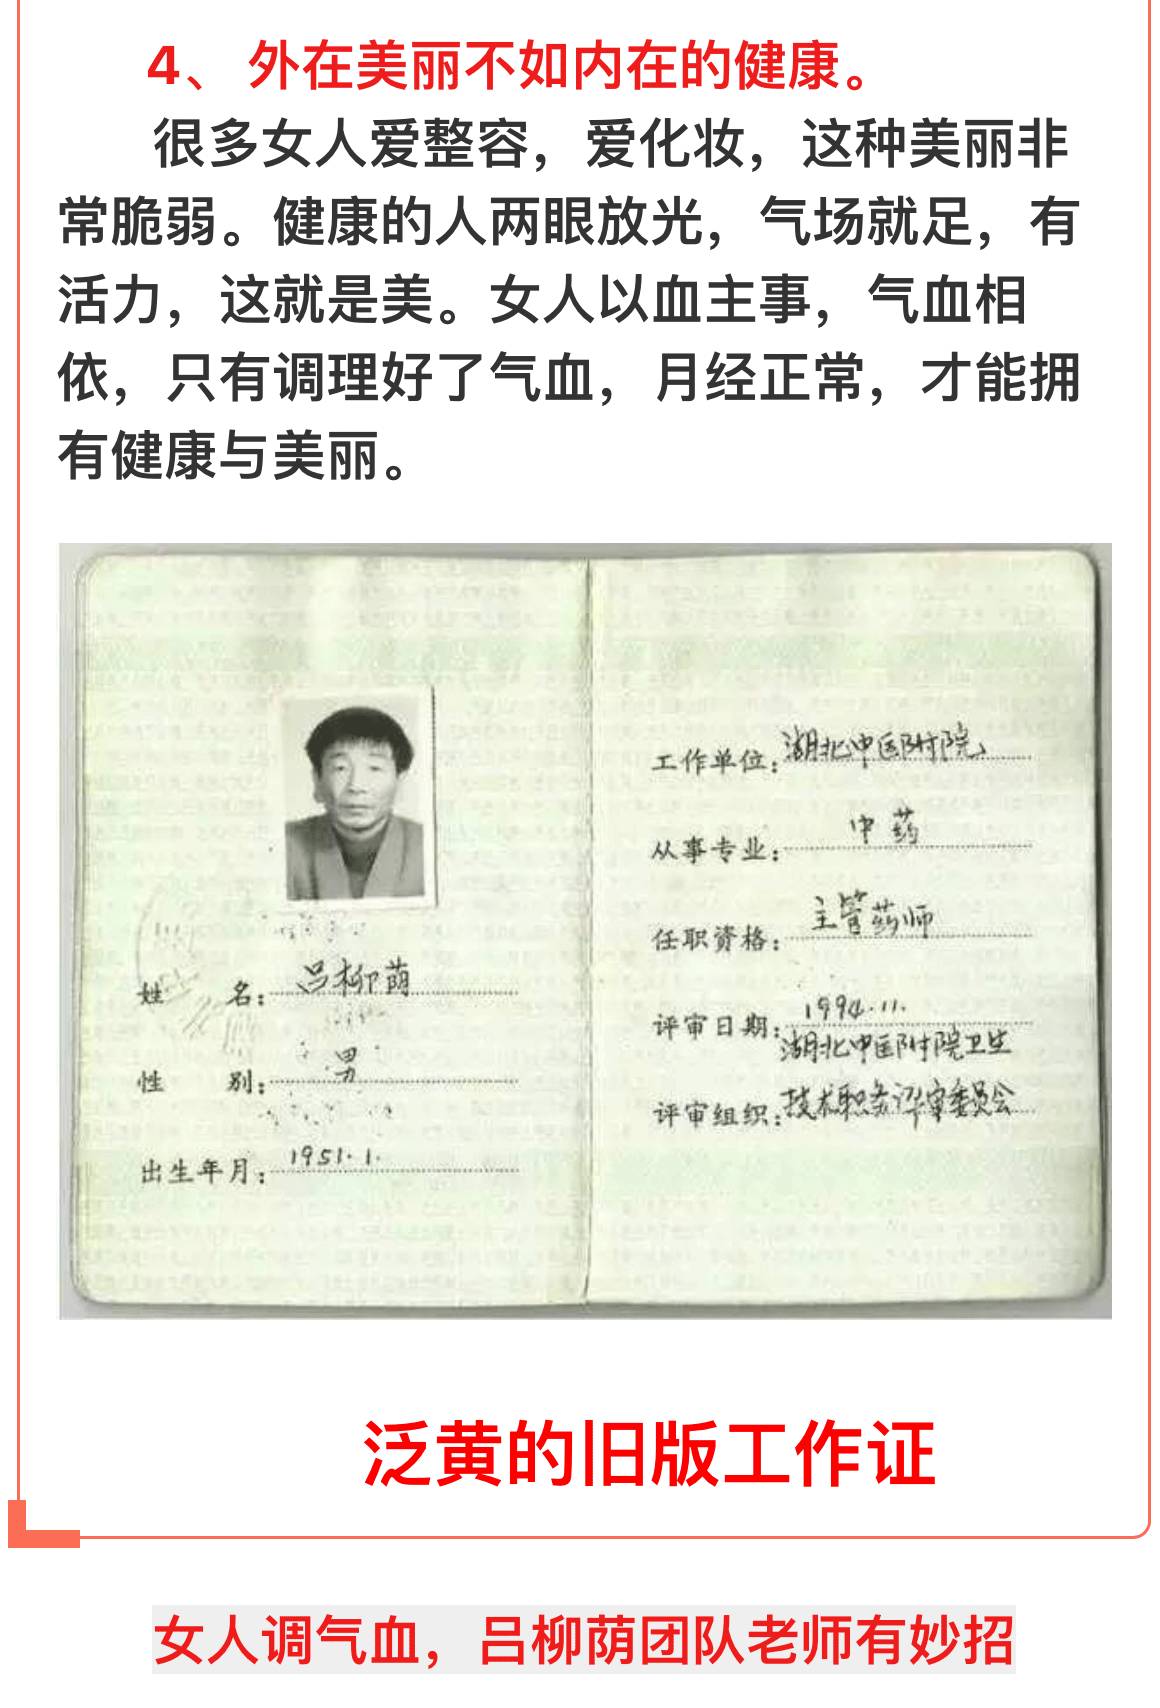 4、 外在美丽不如内在的健康。
很多女人爱整容，爱化妆，这种美丽非
常脆弱。健康的人两眼放光，气场就足，有
活力，这就是美。女人以血主事，气血相
依，只有调理好了气血，月经正常，才能拥
有健康与美丽。
姓 名：吕柳荫
性 别：男
出生年月：1951.1.
工作单位：湖北中医附院
从事专业：中药
任职资格：主管药师
评审日期：1994.11.
湖北中医附院卫生
评审组织：技术职务评审委员会
泛黄的旧版工作证
女人调气血，吕柳荫团队老师有妙招